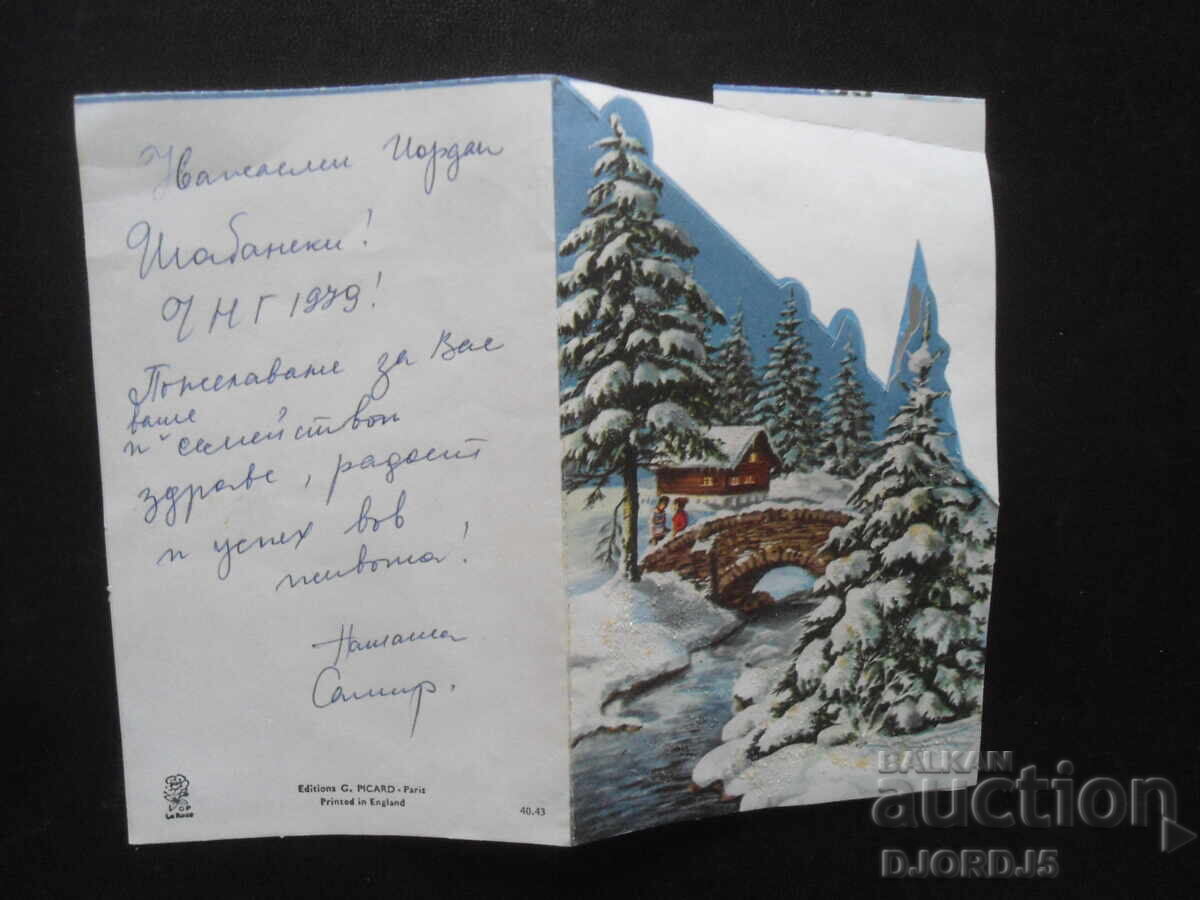 Уважаеми Иордан
Шабански!
ЧНГ 1979!
Пожелаваме за Вас
ваше
и семейством
здраве, радост
и успех вов
живота!
Наташа
Самир.
LOP
La Rose
Editions G. PICARD - Paris
Printed in England
40.43
BALKAN
auction
DJORDJ5